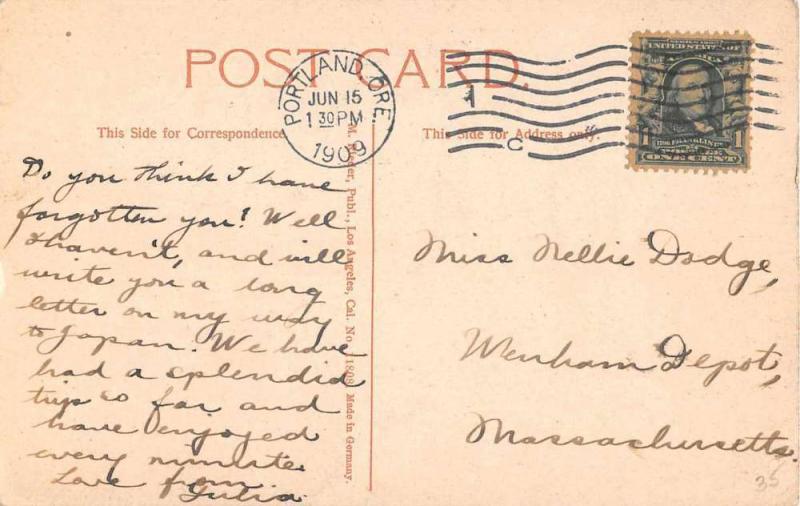 POST CARD.
PORTLAND, ORE.
JUN 15
1 30 PM
1909
1
C
UNITED STATES
OF AMERICA
1 FRANKLIN 1
ONE CENT
This Side for Correspondence
This Side for Address only.
Publ., Los Angeles, Cal. No. Made in Germany.
Do you think I have
forgotten you? Well
I haven't, and will
write you a long
letter on my way
to Japan. We have
had a splendid
trip so far and
have enjoyed
every minute.
Love from
Julia
Miss Nellie Dodge,
Wenham Depot,
Massachusetts.
35